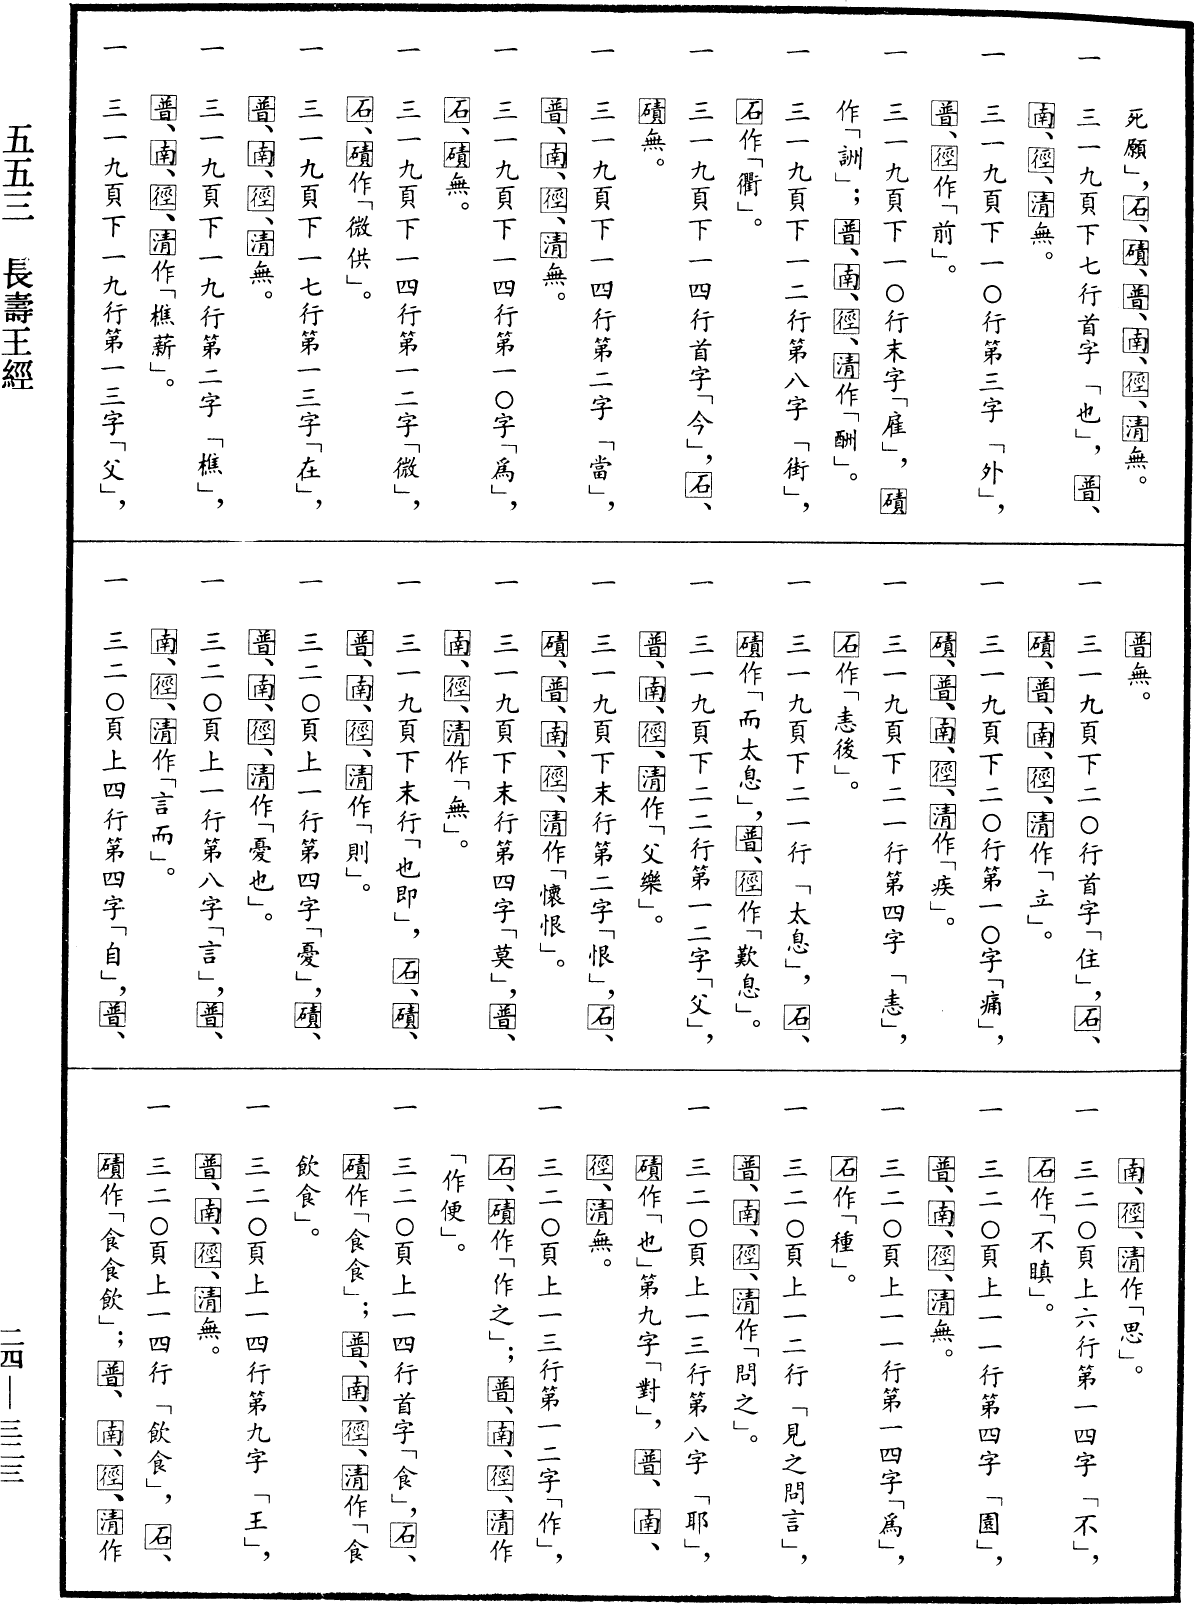 死願」，石、磧、普、南、徑、清無。
一　三一九頁下七行首字「也」，普、
南、徑、清無。
一　三一九頁下一〇行第三字「外」，
普、徑作「前」。
一　三一九頁下一〇行末字「雇」，磧
作「詶」；普、南、徑、清作「酬」。
一　三一九頁下一二行第八字「街」，
石作「衢」。
一　三一九頁下一四行首字「今」，石、
磧無。
一　三一九頁下一四行第二字「當」，
普、南、徑、清無。
一　三一九頁下一四行第一〇字「爲」，
石、磧無。
一　三一九頁下一四行第一二字「微」，
石、磧作「微供」。
一　三一九頁下一七行第一三字「在」，
普、南、徑、清無。
一　三一九頁下一九行第二字「樵」，
普、南、徑、清作「樵薪」。
一　三一九頁下一九行第一三字「父」，
普無。
一　三一九頁下二〇行首字「住」，石、
磧、普、南、徑、清作「立」。
一　三一九頁下二〇行第一〇字「痛」，
磧、普、南、徑、清作「疾」。
一　三一九頁下二一行第四字「恚」，
石作「恚後」。
一　三一九頁下二一行「太息」，石、
磧作「而太息」，普、徑作「歎息」。
一　三一九頁下二二行第一二字「父」，
普、南、徑、清作「父樂」。
一　三一九頁下末行第二字「恨」，石、
磧、普、南、徑、清作「懷恨」。
一　三一九頁下末行第四字「莫」，普、
南、徑、清作「無」。
一　三一九頁下末行「也即」，石、磧、
普、南、徑、清作「則」。
一　三二〇頁上一行第四字「憂」，磧、
普、南、徑、清作「憂也」。
一　三二〇頁上一行第八字「言」，普、
南、徑、清作「言而」。
一　三二〇頁上四行第四字「自」，普、
南、徑、清作「思」。
一　三二〇頁上六行第一四字「不」，
石作「不瞋」。
一　三二〇頁上一一行第四字「園」，
普、南、徑、清無。
一　三二〇頁上一一行第一四字「爲」，
石作「種」。
一　三二〇頁上一二行「見之問言」，
普、南、徑、清作「問之」。
一　三二〇頁上一三行第八字「耶」，
磧作「也」第九字「對」，普、南、
徑、清無。
一　三二〇頁上一三行第一二字「作」，
石、磧作「作之」；普、南、徑、清作
「作便」。
一　三二〇頁上一四行首字「食」，石、
磧作「食食」；普、南、徑、清作「食
飲食」。
一　三二〇頁上一四行第九字「王」，
普、南、徑、清無。
一　三二〇頁上一四行「飲食」，石、
磧作「食食飲」；普、南、徑、清作
五五三　長壽王經
二四—三二三